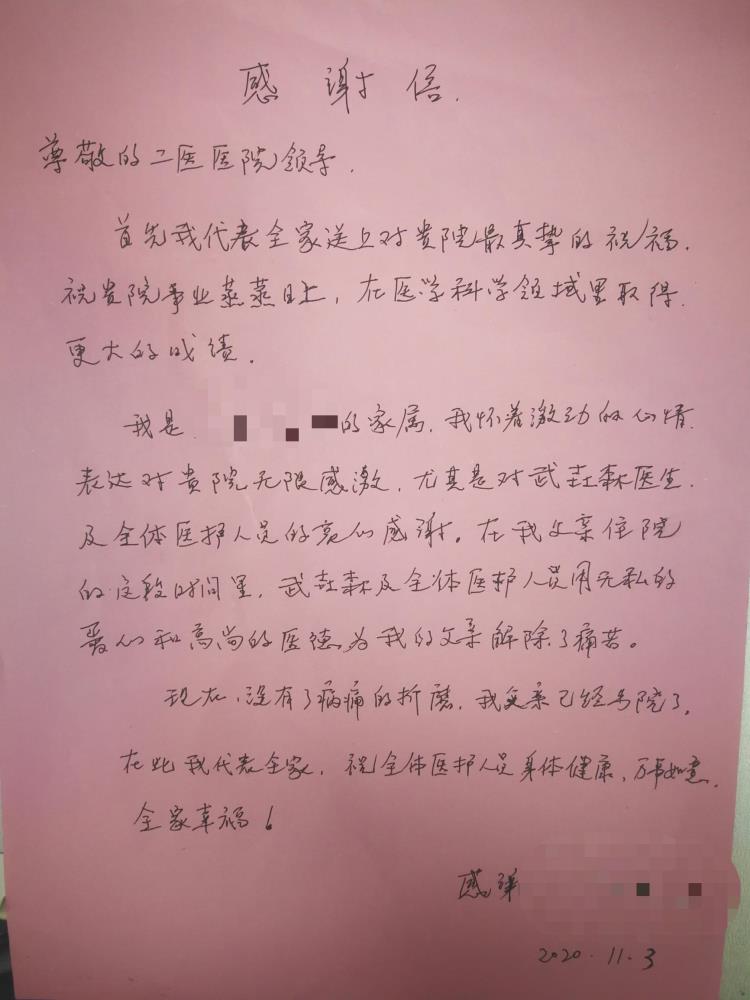 感谢信.
尊敬的二医医院领导.
首先我代表全家送上对贵院最真挚的祝福.
祝贵院事业蒸蒸日上,在医学科学领域里取得
更大的成绩.
我是 的家属,我怀着激动的心情
表达对贵院无限感激,尤其是对武 森医生
及全体医护人员的衷心感谢。在我父亲住院
的这段时间里,武 森及全体医护人员用无私的
爱心和高尚的医德为我的父亲解除了痛苦。
现在,没有了病痛的折磨,我父亲已经出院了,
在此我代表全家,祝全体医护人员身体健康,万事如意,
全家幸福!
感谢
2020.11.3